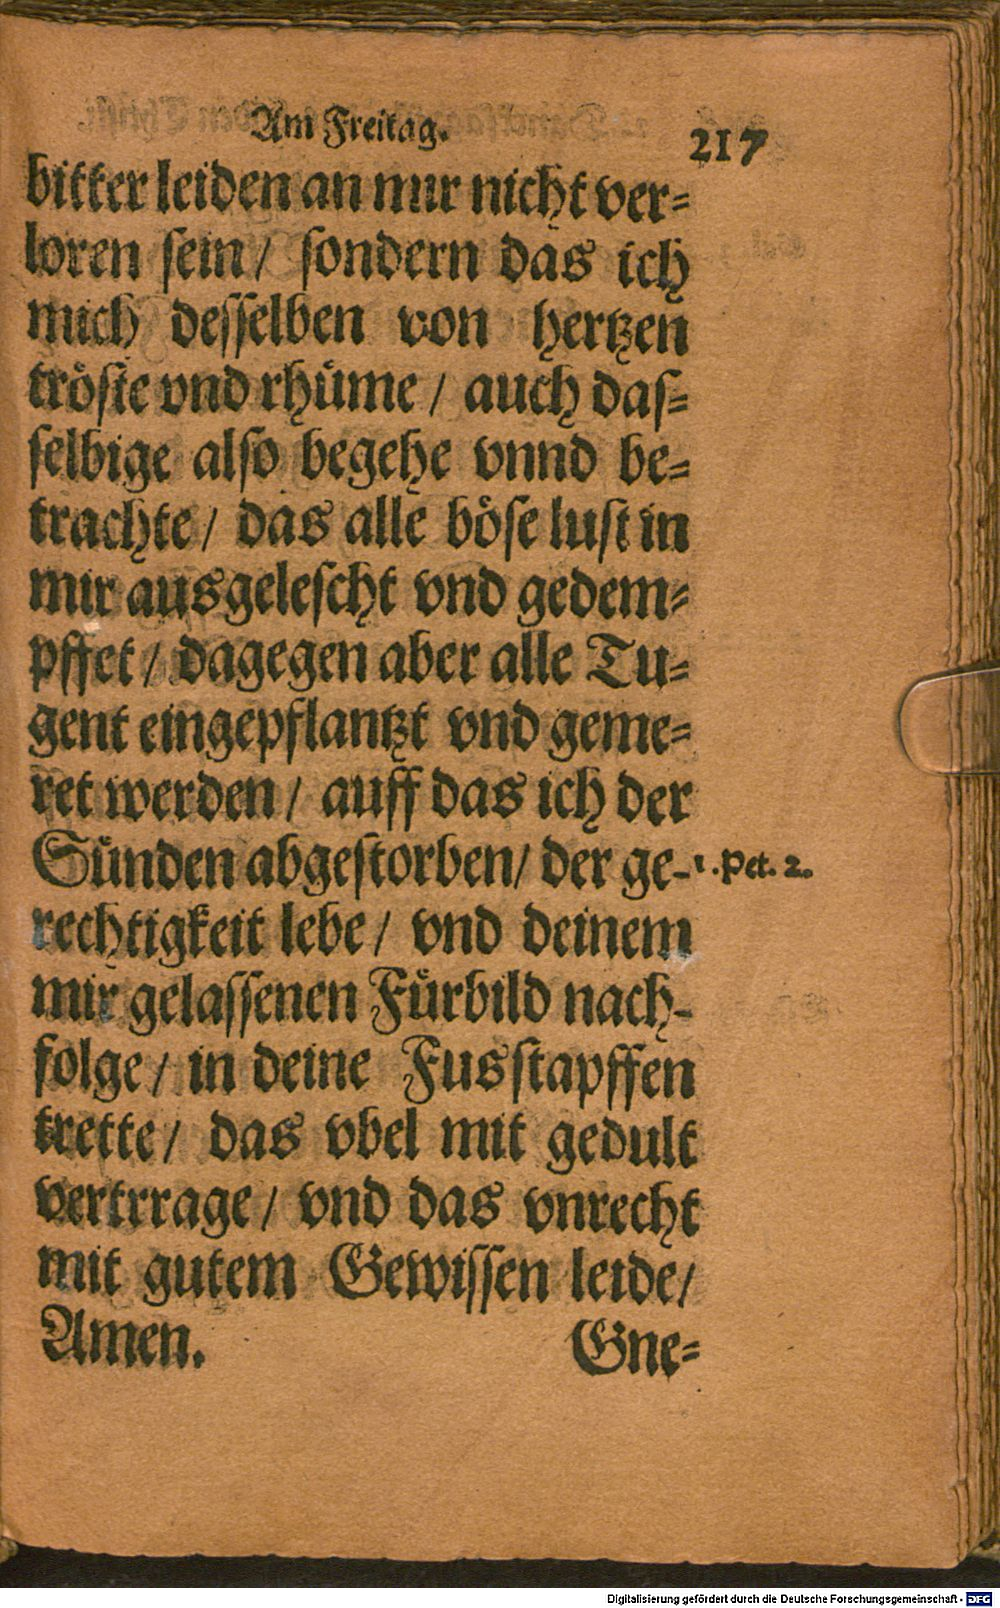 Am Freitag. 217
bitter leiden an mir nicht ver=
loren sein/ sondern das ich
mich desselben von hertzen
tröste vnd rhüme/ auch das=
selbige also begehe vnnd be=
trachte/ das alle böse lust in
mir ausgelescht vnd gedem=
pffet/ dagegen aber alle Tu=
gent eingepflantzt vnd geme=
ret werden/ auff das ich der
Sünden abgestorben/ der ge- 1. Pet. 2.
rechtigkeit lebe/ vnd deinem
mir gelassenen Fürbild nach-
folge/ in deine Fusstapffen
trette/ das vbel mit gedult
vertrrage/ vnd das vnrecht
mit gutem Gewissen leide/
Amen. Gne=
Digitalisierung gefördert durch die Deutsche Forschungsgemeinschaft - DFG